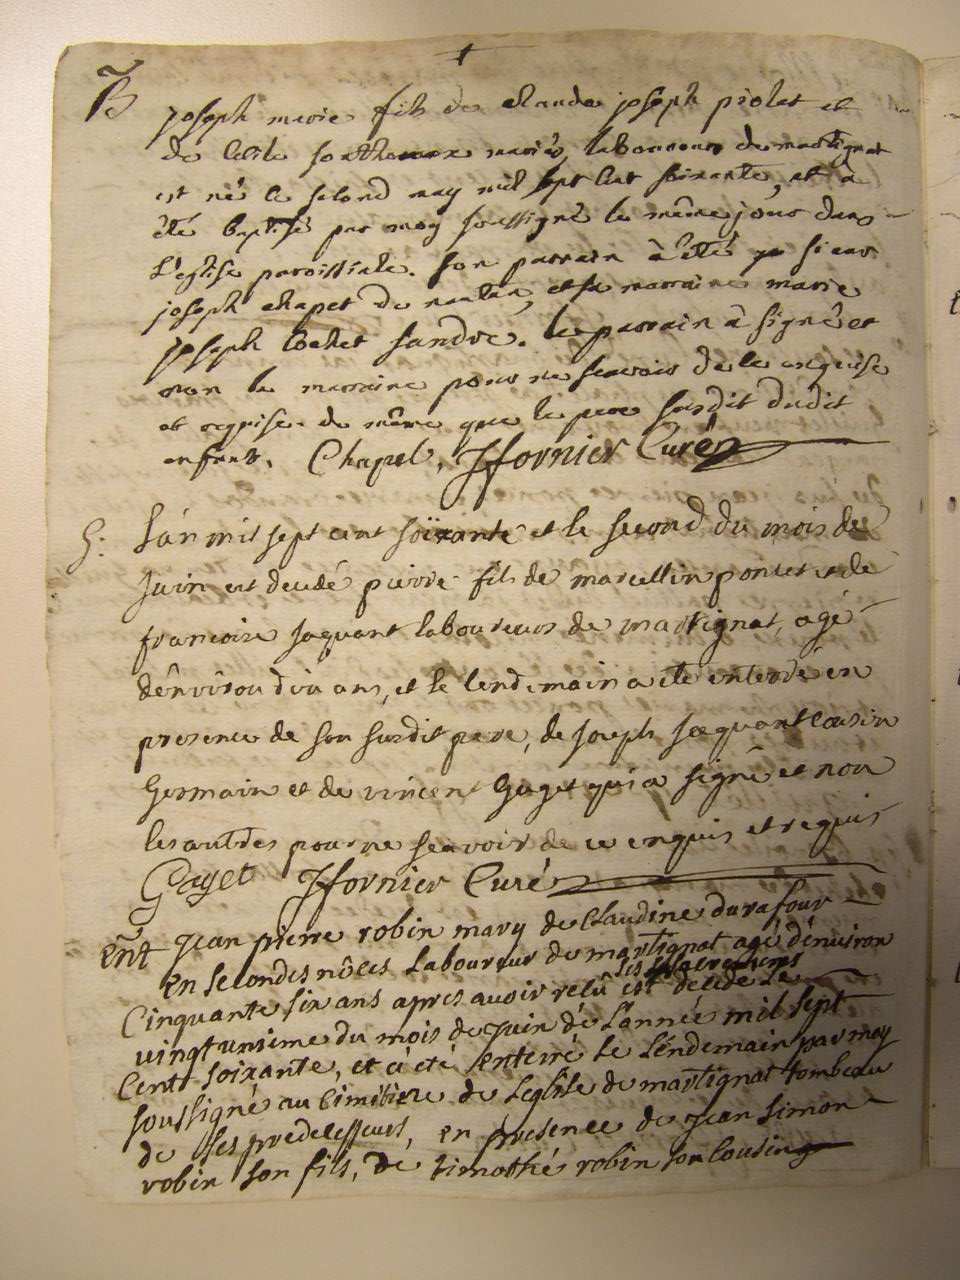 B
joseph marie fils de claude joseph piolat et
de cecile mariés, laboureurs de martignat
est né le second may mil sept cent soixante, et a
été baptisé par moy soussigné le même jour dans
L'eglise paroissiale. son parrain à été sieur
joseph chapel de nantua, et sa marraine marie
joseph cochet sandoz. le parrain à signé et
non la marraine pour ne scavoir de ce enquise
et requise de même que le pere susdit dudit
enfant. Chapel, Jfornier Curé
S:
L'an mil sept cent soixante et le second du mois de
Juin est decedé pierre fils de marcellin poncet et de
francoise Jaquant laboureurs de martignat, agé
d'environ dix ans, et le lendemain a été enterré en
presence de son susdit pere, de Joseph Jaquant cousin
Germain et de vincent Gaget qui a signé et non
les autres pour ne scavoir de ce enquis et requis
Gaget Jfornier Curé
ent Jean pierre robin mary de Claudine durafour
en secondes nôces Laboureur de martignat agé dénviron
les sacrements
Cinquante six ans apres avoir recû est decedé Le
vingt unsieme du mois de Juin de Lannée mil sept
Cent soixante, et à été enterré le Lendemain par moy
soussigné au Cimitiere de Leglise de martignat tombeau
de ses predecesseurs, en presence de Jean simon
robin son fils, de timothé robin son cousin